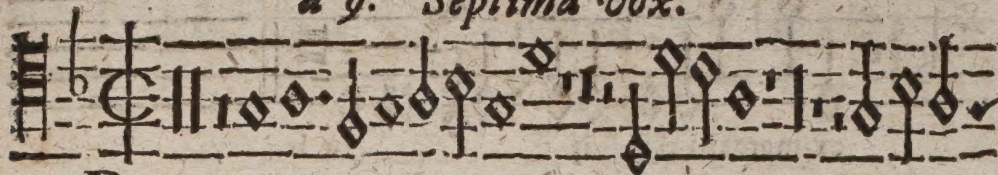 a 9. Septima vox.